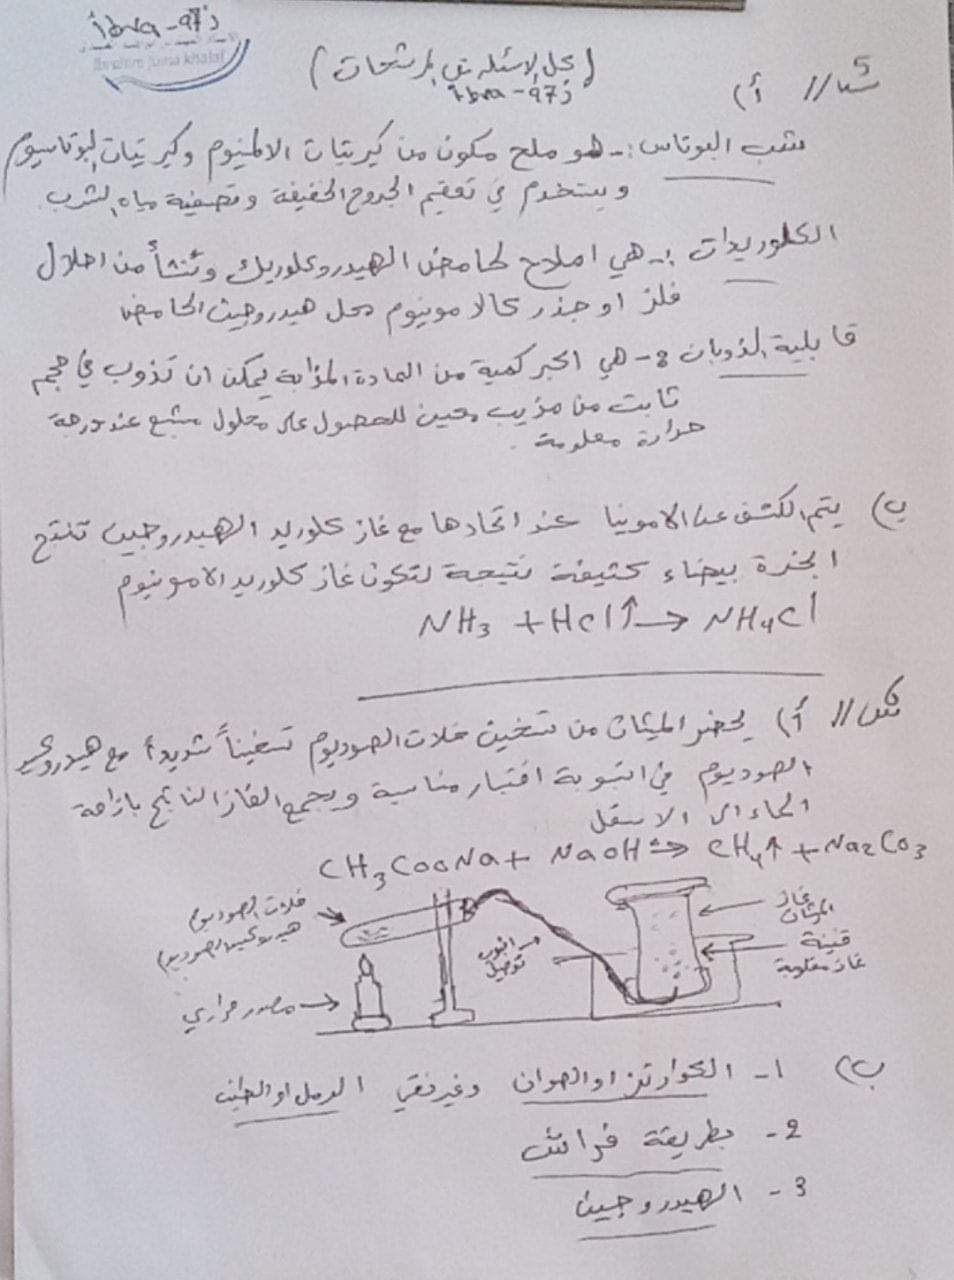 أbrа-97ز
Ibrahim juma khalaf
(حل الاسئلة مع المرشحات)
أbra-97ز
س5// أ)
شب البوتاس :- هو ملح مكون من كبريتات الالمنيوم وكبريتات البوتاسيوم
ويستخدم في تعقيم الجروح الخفيفة وتصفية مياه الشرب.
الكلوريدات :- هي املاح لحامض الهيدروكلوريك وتنشأ من احلال
فلز او جذر كالامونيوم محل هيدروجين الحامض
قابلية الذوبان :- هي اكبر كمية من المادة المذابة يمكن ان تذوب في حجم
ثابت من مذيب معين للحصول على محلول مشبع عند درجة
حرارة معلومة.
ب) يتم الكشف عن الامونيا عند اتحادها مع غاز كلوريد الهيدروجين تنتج
ابخرة بيضاء كثيفة نتيجة لتكون غاز كلوريد الامونيوم
NH₃ + HCl↑ → NH₄Cl
س6// أ) يحضر الميثان من تسخين خلات الصوديوم تسخيناً شديداً مع هيدروكسيد
الصوديوم في انبوبة اختبار مناسبة ويجمع الغاز الناتج بازاحة
الماء الى الاسفل
CH₃CooNa + NaOH ⇒ CH₄↑ + Na₂Co₃
خلات الصوديوم
هيدروكسيد الصوديوم
مصدر حراري
انبوب
توصيل
غاز
الميثان
قنينة
غاز مملوءة
ب) 1- الكوارتز او الصوان وغير نقي الرمل او الطين
2- بطريقة فراش
3- الهيدروجين